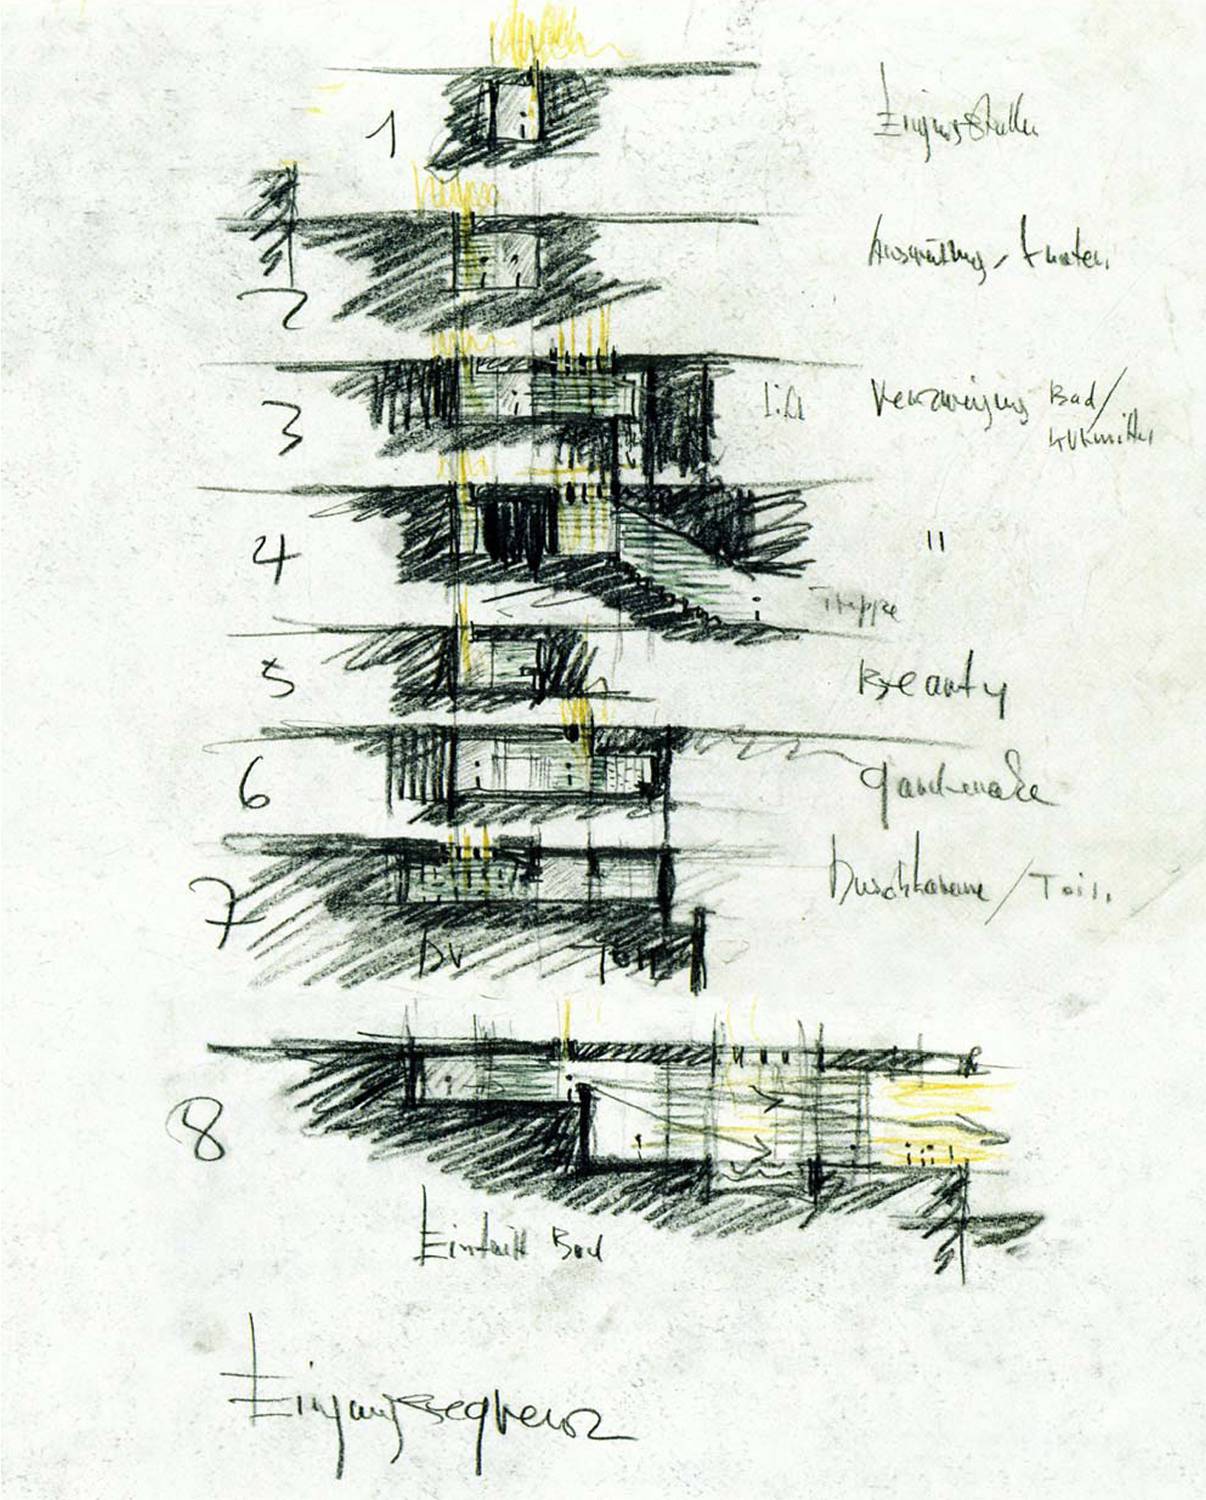 1
Eingangsstollen
2
3
Lift
Verzweigung Bad/
4
"
Treppe
5
Beauty
6
Garderobe
7
Duschkabine / Toil.
Du Toil
8
Eintritt Bad
Eingangssequenz